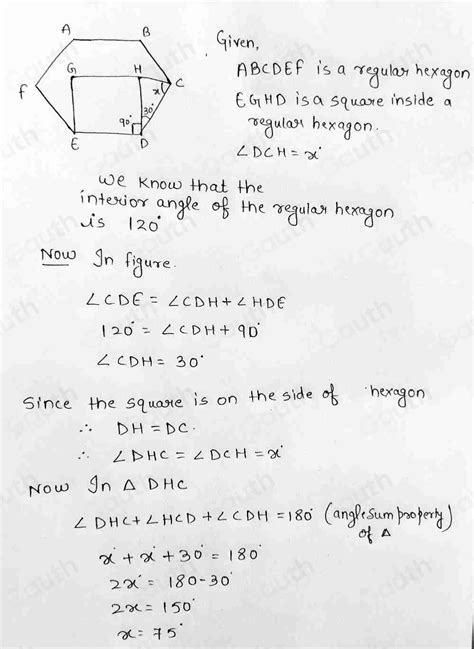 A
B
G
H
F
x
C
30°
90°
E
D
Given,
ABCDEF is a regular hexagon
EGHD is a square inside a
regular hexagon.
∠DCH = x°
We know that the
interior angle of the regular hexagon
is 120°
Now In figure.
∠CDE = ∠CDH + ∠HDE
120° = ∠CDH + 90°
∠CDH = 30°
Since the square is on the side of hexagon
∴ DH = DC.
∴ ∠DHC = ∠DCH = x°
Now In Δ DHC
∠DHC + ∠HCD + ∠CDH = 180° (angle sum property)
of Δ
x° + x° + 30° = 180°
2x° = 180 - 30°
2x = 150°
x = 75°